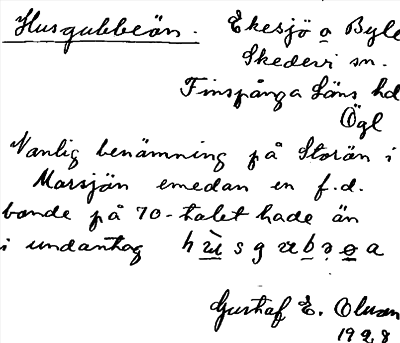 Husgubbeön. Ekesjö o Byle
Skedevi sn.
Finspånga Läns hd
Ögl
Vanlig benämning på Storön i
Marsjön emedan en f.d.
bonde på 70-talet hade ön
i undantag
Gustaf E. Olsson
1928